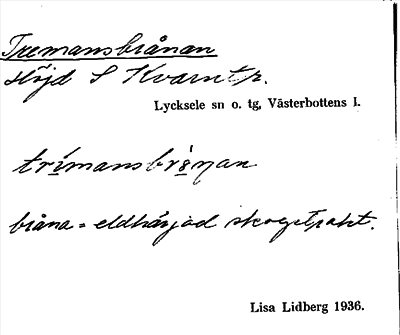 Tremansbrånan
slöjd S Kvarntr.
Lycksele sn o. tg, Västerbottens l.
trímansbrånan
bråna = eldhärjad skogstrakt.
Lisa Lidberg 1936.